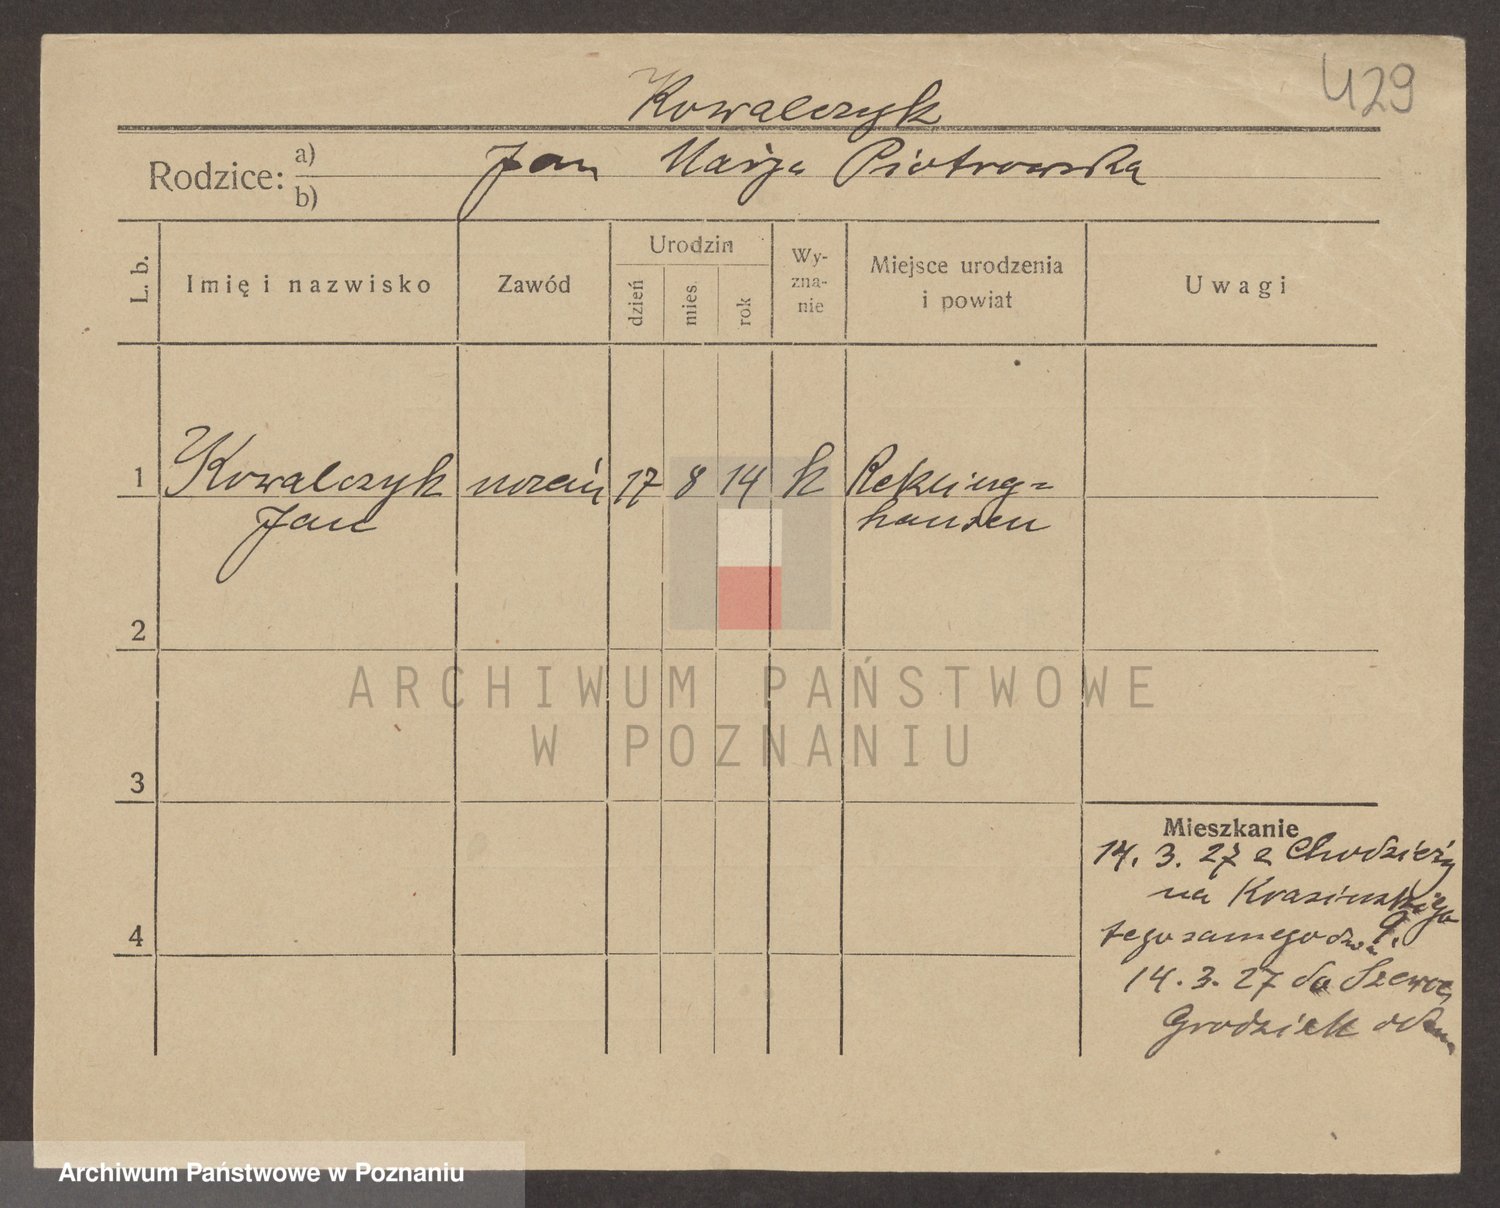 429
Kowalczyk
Rodzice: a) Jan Marja Piotrowska
b)
L. b. Imię i nazwisko Zawód Urodzin dzień mies. rok Wy-zna-nie Miejsce urodzenia i powiat Uwagi
1 Kowalczyk uczeń 17 8 14 k Rekling=
Jan hausen
2
ARCHIWUM PAŃSTWOWE
W POZNANIU
3
4
Mieszkanie
14. 3. 27 z Chodzieży
na Krasińskiego
9.
tego samego
14. 3. 27 do
Grodzisk
Archiwum Państwowe w Poznaniu